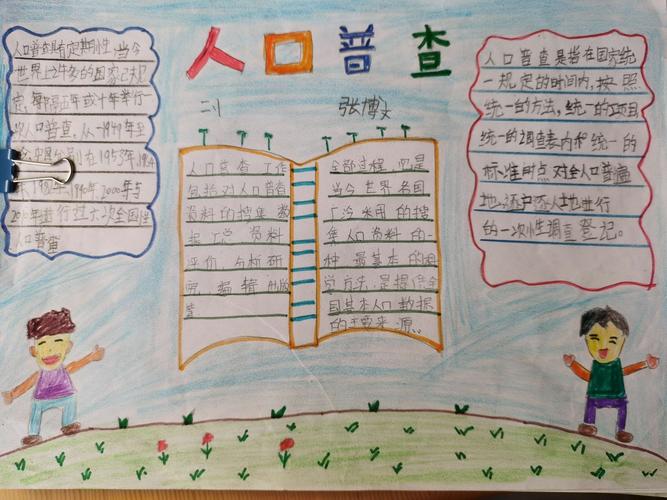 人口普查
二1 张博文
人口普查具有定期性,当今
世界上许多的国家已规
定,每隔五年或十年举行一
次人口普查,从1949年至
在1953年,1964
1990年,2000年与
2010年进行过六次全国性
人口普查
人口普查工作
包括对人口普查
资料的搜集 数
据汇总 资料
评价、分析研
究、编辑出版
等
全部过程,它是
当今世界各国
广泛采用的搜
集人口资料的一
种最基本的科
学方法,是提供全
国基本人口数据
的主要来源。
人口普查是指在国家统
一规定的时间内,按照
统一的方法,统一的项目
统一的调查表内和统一的
标准时点对全人口普遍
地、逐户逐人地进行
的一次性调查登记。